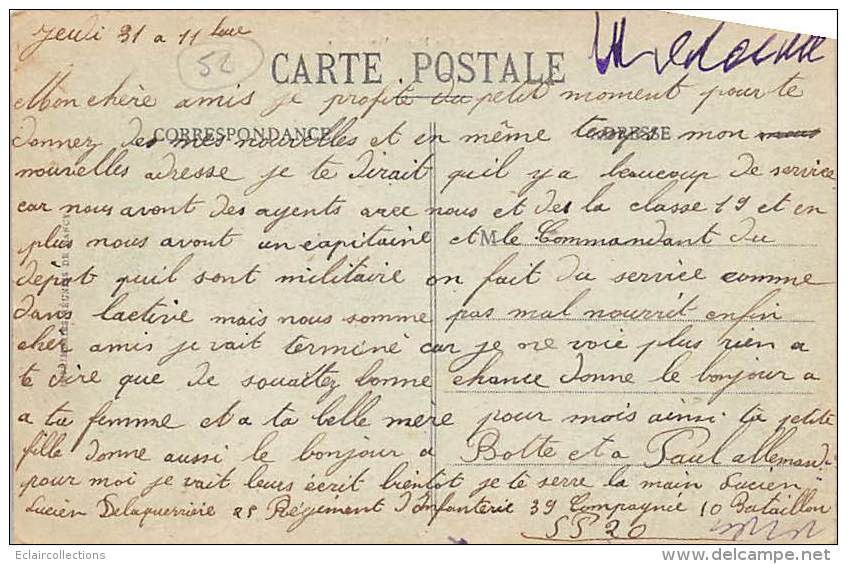 Jeudi 31 a 11 heure
52
CARTE POSTALE
Mon chère amis je profite du petit moment pour te
CORRESPONDANCE
ADRESSE
donnez des mes nouvelles et en même temps mon
nouvelles adresse je te dirait quil y a beaucoup de service
car nous avont des agents avec nous et des la classe 19 et en
plus nous avont un capitaine et le Commandant du
M
depot quil sont militaire on fait du service comme
dans lactive mais nous somme pas mal nourrit enfin
cher amis je vait terminé car je ne voie plus rien a
te dire que de souaitez bonne chance donne le bonjour a
a ta femme et a ta belle mère pour mois ainsi ta petite
fille donne aussi le bonjour a Botte et a Paul allemand
pour moi je vait leurs écrit bientot je te serre la main Lucien
Lucien Delaguerriere 25 Régiment d'infanterie 39 Compagnie 10 Bataillon
SP 20
Eclaircollections
www.delcampe.net